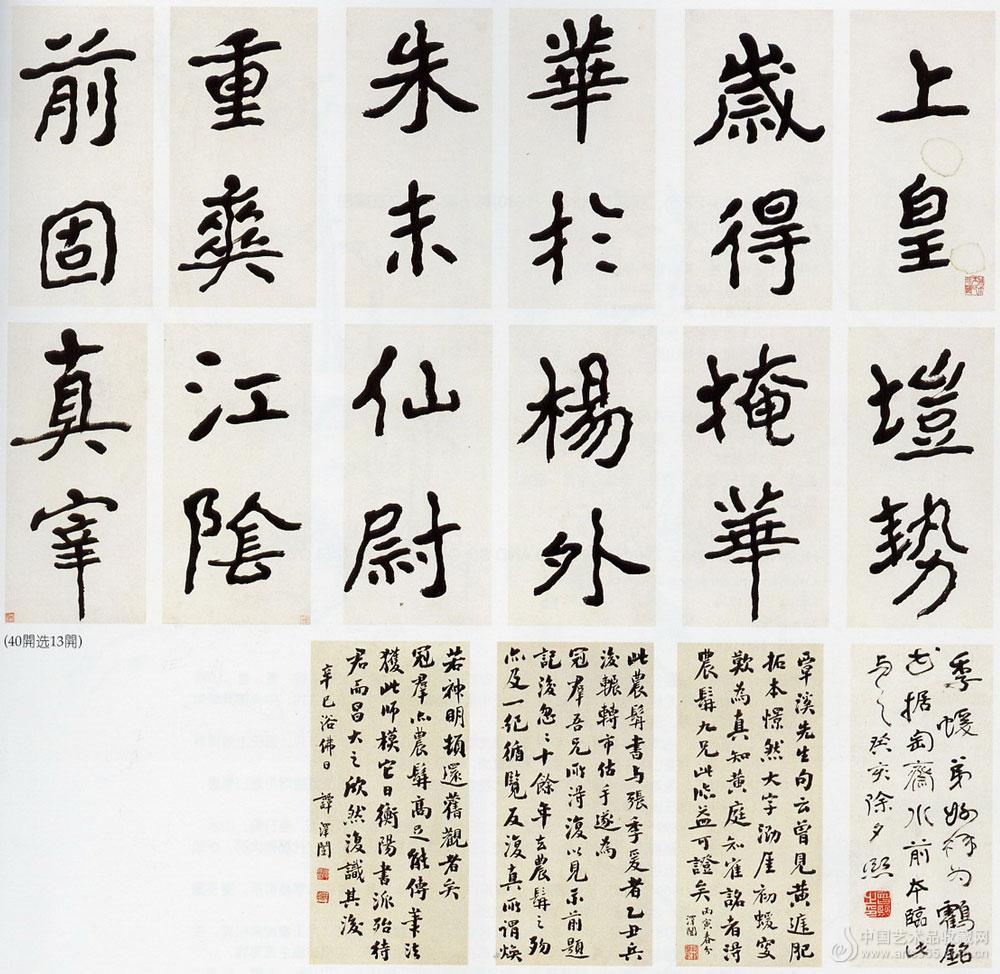 上皇
歲得
華於
朱未
重爽
前固
塏勢
掩華
楊外
仙尉
江陰
真宰
(40開选13開)
季蝯弟 為鶴銘
據匋齋水前本臨此
與之癸亥除夕熙
覃溪先生句云曾見黃涯肥
拓本憬然大字溯厓初蝯叟
歎為真知黃庭知崔銘者得
農髯九兄此臨益可證矣丙寅春分
澤闓
此農髯書与張季爰者乙丑兵
後輾轉市估手遂為
冠羣吾兄所得復以見示前題
記後忽忽十餘年去農髯之歿
亦及一紀循覽反復真所謂煥
若神明頓還舊觀者矣
冠羣亦農髯高足能傳筆法
獲此師模它日衡陽書派殆待
君而昌大之欣然復識其後
辛巳浴佛日 譚澤闓
中国艺术品收藏网